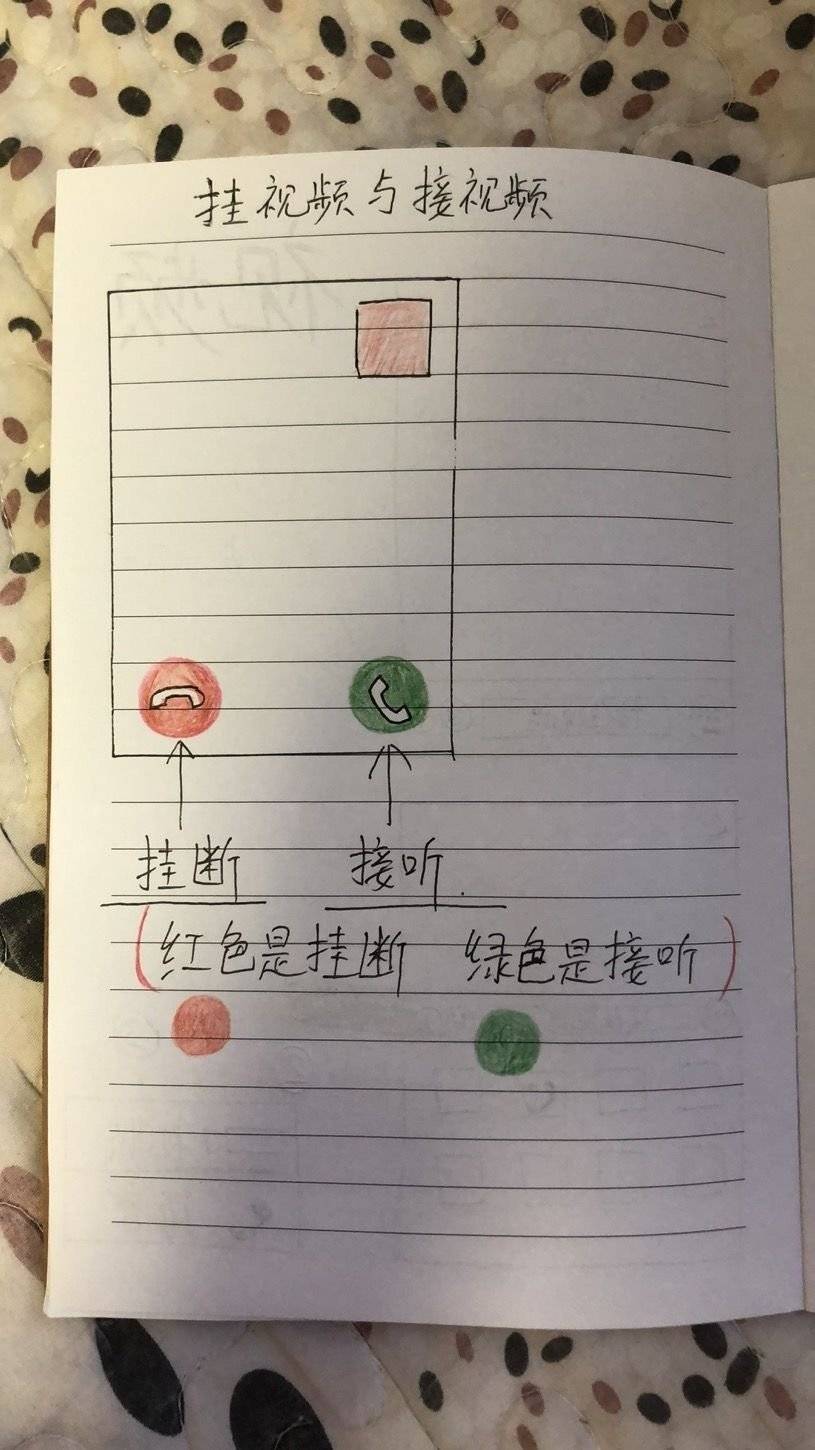 挂视频与接视频
挂断 接听.
(红色是挂断 绿色是接听)